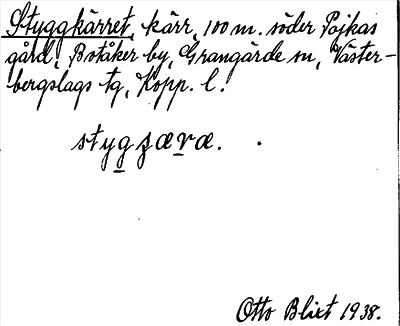 Styggkärret, kärr, 100 m. söder Pojkas
gård, Botåker by, Grangärde sn, Väster-
bergslags tg, Kopp. l.
stygʒæræ.
Otto Blixt 1938.